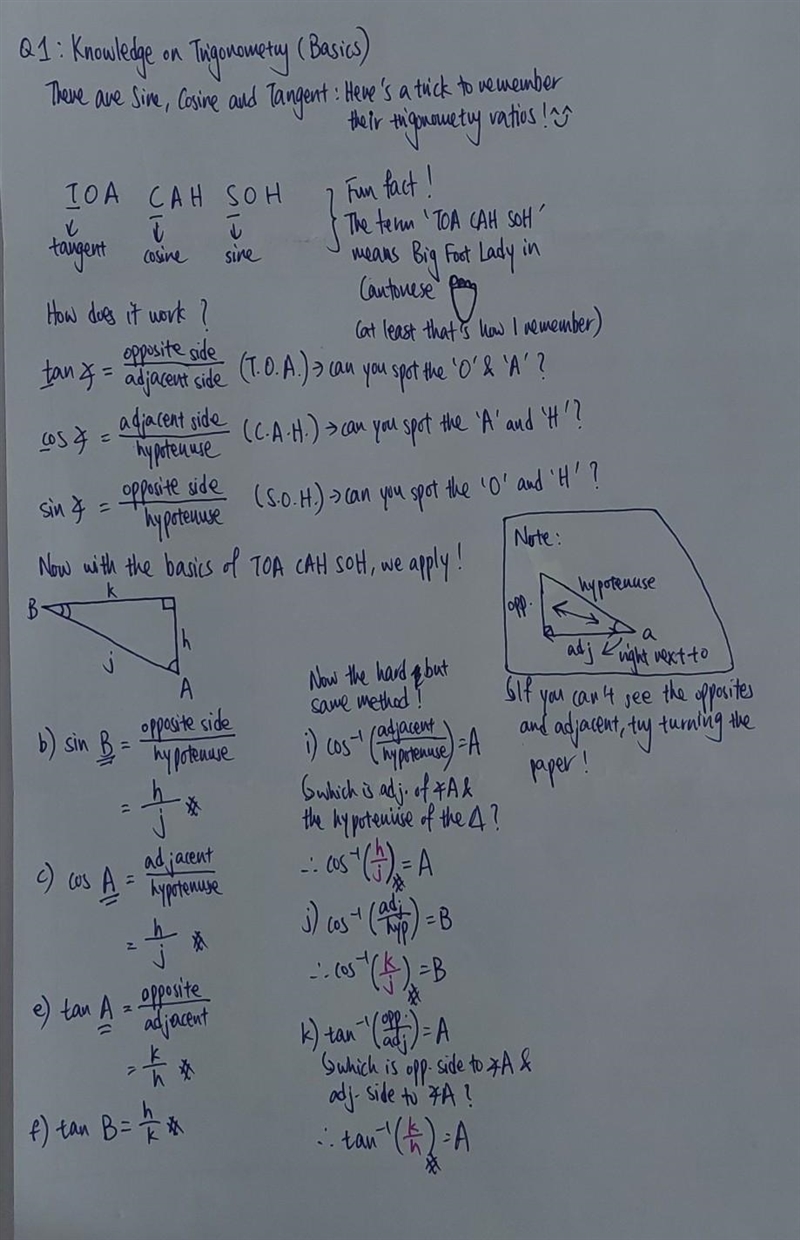 Q1: Knowledge on Trigonometry (Basics)
There are Sine, Cosine and Tangent: Here's a trick to remember
their trigonometry ratios! ツ
TOA CAH SOH
↓ ↓ ↓
tangent cosine sine
Fun fact!
The term 'TOA CAH SOH'
means Big Foot Lady in
Cantonese
(at least that's how I remember)
How does it work?
tan ∡ = opposite side / adjacent side (T.O.A.) → can you spot the 'O' & 'A'?
cos ∡ = adjacent side / hypotenuse (C.A.H.) → can you spot the 'A' and 'H'?
sin ∡ = opposite side / hypotenuse (S.O.H.) → can you spot the 'O' and 'H'?
Now with the basics of TOA CAH SOH, we apply!
B k
h
j
A
Note:
hypotenuse
opp.
a
adj ↙ right next to
↳ If you can't see the opposites
and adjacent, try turning the
paper!
b) sin B = opposite side / hypotenuse
= h/j
c) cos A = adjacent / hypotenuse
= h/j
e) tan A = opposite / adjacent
= k/h
f) tan B = h/k
Now the hard but
same method!
i) cos⁻¹(adjacent / hypotenuse) = A
↳ which is adj. of ∡A &
the hypotenuse of the Δ?
∴ cos⁻¹(h/j) = A
j) cos⁻¹(adj / hyp) = B
∴ cos⁻¹(k/j) = B
k) tan⁻¹(opp. / adj) = A
↳ which is opp. side to ∡A &
adj. side to ∡A?
∴ tan⁻¹(k/h) = A